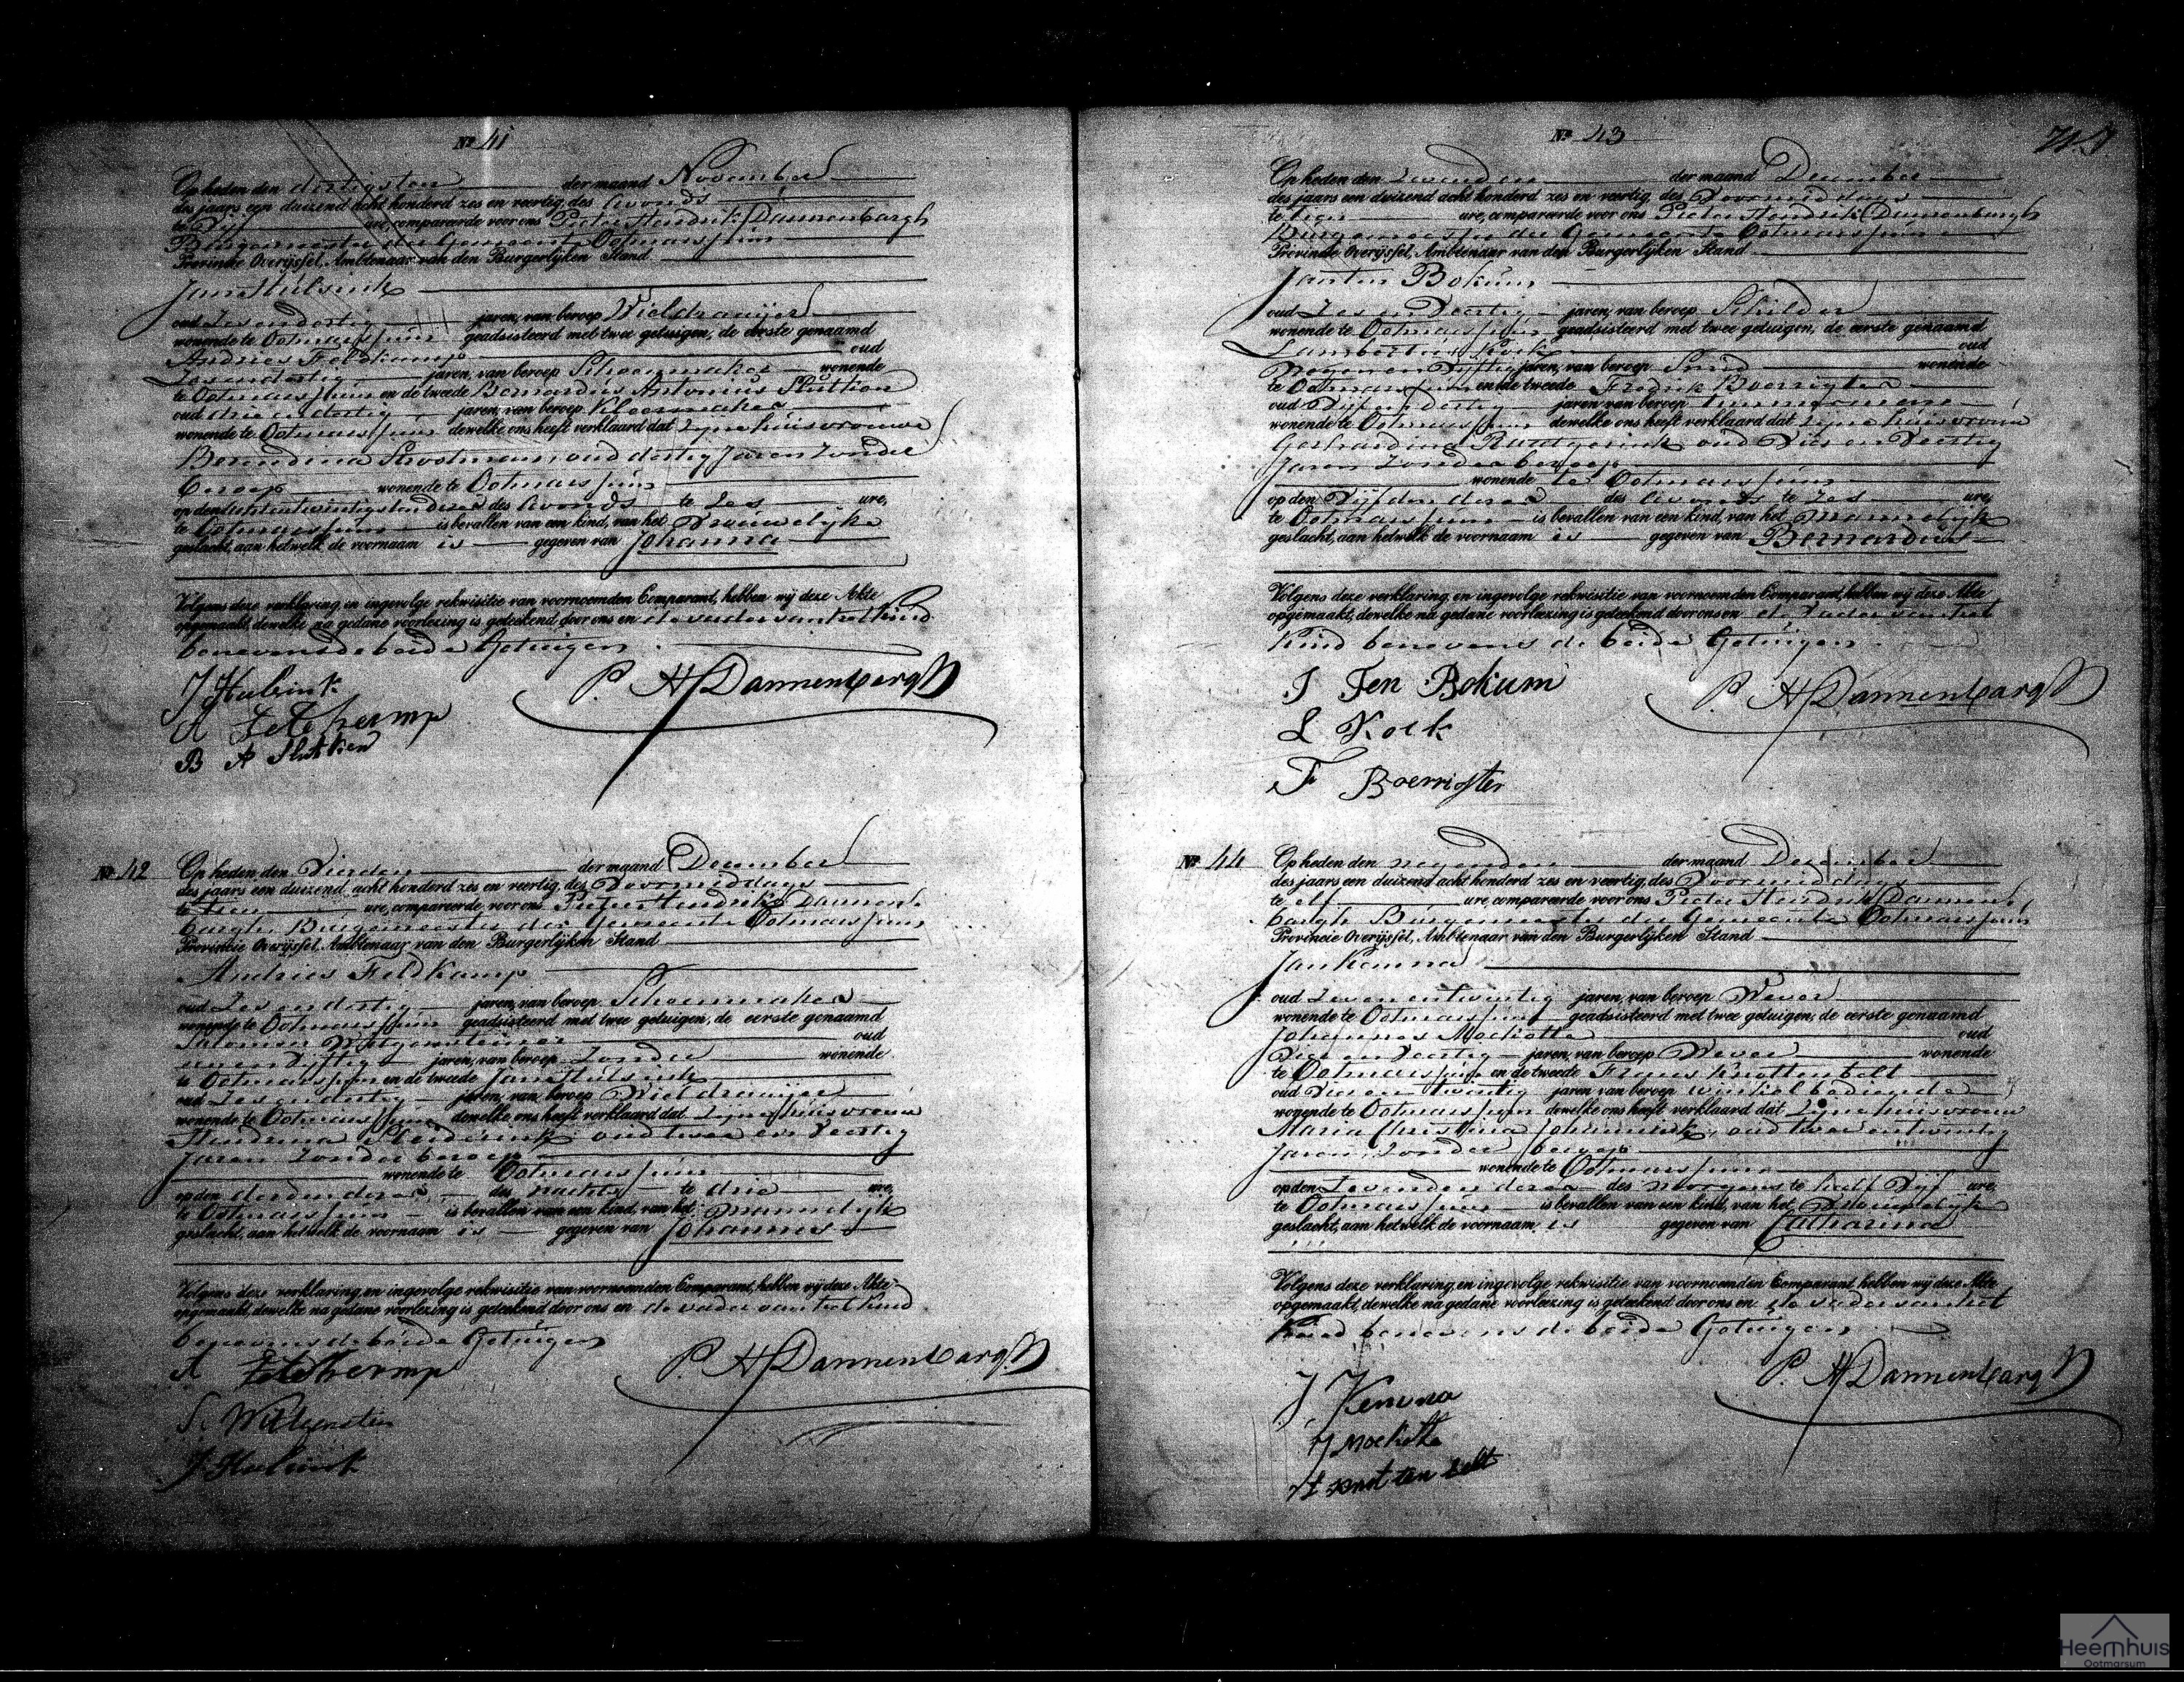 Nº 41
Op heden den dertigsten der maand November
des jaars een duizend acht honderd zes en veertig, des Avonds
te Vijf ure, compareerde voor ons Pieter Hendrik Dannenbargh
Burgemeester der Gemeente Ootmarssum
Provincie Overijssel, Ambtenaar van den Burgerlijken Stand
Jan Hulsink
oud Zes en dertig jaren, van beroep Wieldraaijer
wonende te Ootmarssum geadsisteerd met twee getuigen, de eerste genaamd
Andries Feldkamp oud
Zes en dertig jaren, van beroep Schoenmaker wonende
te Ootmarssum en de tweede Bernardus Antonius
oud drie en dertig jaren, van beroep Kleermaker
wonende te Ootmarssum dewelke ons heeft verklaard dat zijne huisvrouw
Berendina oud dertig Jaren Zonder
beroep wonende te Ootmarssum
op den achtentwintigsten dezer des Avonds te Zes ure,
te Ootmarssum is bevallen van een kind, van het Vrouwelijke
geslacht, aan hetwelk de voornaam is gegeven van Johanna
Volgens deze verklaring, en ingevolge rekwisitie van voornoemden Comparant, hebben wij deze Akte
opgemaakt, dewelke na gedane voorlezing is geteekend door ons en de vader van het kind
benevens de beide Getuigen
J Hulsink
P. H Dannenbargh
A Feldkamp
B A
Nº 42
Op heden den Vierden der maand December
des jaars een duizend acht honderd zes en veertig, des Voormiddags
te tien ure, compareerde voor ons Pieter Hendrik Dannen-
bargh Burgemeester der Gemeente Ootmarssum
Provincie Overijssel, Ambtenaar van den Burgerlijken Stand
Andries Feldkamp
oud Zes en dertig jaren, van beroep Schoenmaker
wonende te Ootmarssum geadsisteerd met twee getuigen, de eerste genaamd
Salomon oud
een en vijftig jaren, van beroep Zonder wonende
te Ootmarssum en de tweede Jan Hulsink
oud Zes en dertig jaren, van beroep Wieldraaijer
wonende te Ootmarssum dewelke ons heeft verklaard dat Zijne huisvrouw
Hendrina oud twee en Veertig
Jaren Zonder beroep
wonende te Ootmarssum
op den derden dezer des nachts te drie ure,
te Ootmarssum is bevallen van een kind, van het mannelijk
geslacht, aan hetwelk de voornaam is gegeven van Johannes
Volgens deze verklaring, en ingevolge rekwisitie van voornoemden Comparant, hebben wij deze Akte
opgemaakt, dewelke na gedane voorlezing is geteekend door ons en de vader van het kind
benevens de beide Getuigen
A Feldkamp
P. H Dannenbargh
S.
J Hulsink
Nº 43
Op heden den Zevenden der maand December
des jaars een duizend acht honderd zes en veertig, des Voormiddags
te tien ure, compareerde voor ons Pieter Hendrik Dannenbargh
Burgemeester der Gemeente Ootmarssum
Provincie Overijssel, Ambtenaar van den Burgerlijken Stand
Jan ten Bokum
oud Zes en Veertig jaren, van beroep Schilder
wonende te Ootmarssum geadsisteerd met twee getuigen, de eerste genaamd
Lambertus Kock oud
Negen en Vijftig jaren, van beroep Smid wonende
te Ootmarssum en de tweede Fredrik Boerrigter
oud Vijf en dertig jaren van beroep timmerman
wonende te Ootmarssum dewelke ons heeft verklaard dat zijne huisvrouw
Gerhardina oud Vier en Veertig
Jaren Zonder beroep
wonende te Ootmarssum
op den Vijfden dezer des Avonds te Zes ure,
te Ootmarssum is bevallen van een kind, van het mannelijk
geslacht, aan hetwelk de voornaam is gegeven van Bernardus
Volgens deze verklaring, en ingevolge rekwisitie van voornoemden Comparant, hebben wij deze Akte
opgemaakt, dewelke na gedane voorlezing is geteekend door ons en de Vader van het
Kind benevens de beide Getuigen
J Ten Bokum
P. H Dannenbargh
L Kock
F Boerrigter
Nº 44
Op heden den negenden der maand December
des jaars een duizend acht honderd zes en veertig, des Voormiddags
te elf ure, compareerde voor ons Pieter Hendrik Dannen-
bargh Burgemeester der Gemeente Ootmarssum
Provincie Overijssel, Ambtenaar van den Burgerlijken Stand
Jan Kemna
oud Zeven en twintig jaren, van beroep Wever
wonende te Ootmarssum geadsisteerd met twee getuigen, de eerste genaamd
Johannes Mochotte oud
Vier en Veertig jaren, van beroep Wever wonende
te Ootmarssum en de tweede Frans Knottenbelt
oud Vier en twintig jaren van beroep winkel bediende
wonende te Ootmarssum dewelke ons heeft verklaard dat Zijne huisvrouw
Maria Christina Johannink, oud twee en twintig
Jaren, Zonder beroep
wonende te Ootmarssum
op den Zevenden dezer des morgens te half Vijf ure,
te Ootmarssum is bevallen van een kind, van het Vrouwelijk
geslacht, aan hetwelk de voornaam is gegeven van Catharina
Volgens deze verklaring, en ingevolge rekwisitie van voornoemden Comparant, hebben wij deze Akte
opgemaakt, dewelke na gedane voorlezing is geteekend door ons en de vader van het
Kind benevens de beide Getuigen
P. H Dannenbargh
J Kemna
J Mochotte
Knottenbelt
Heemhuis
Ootmarsum